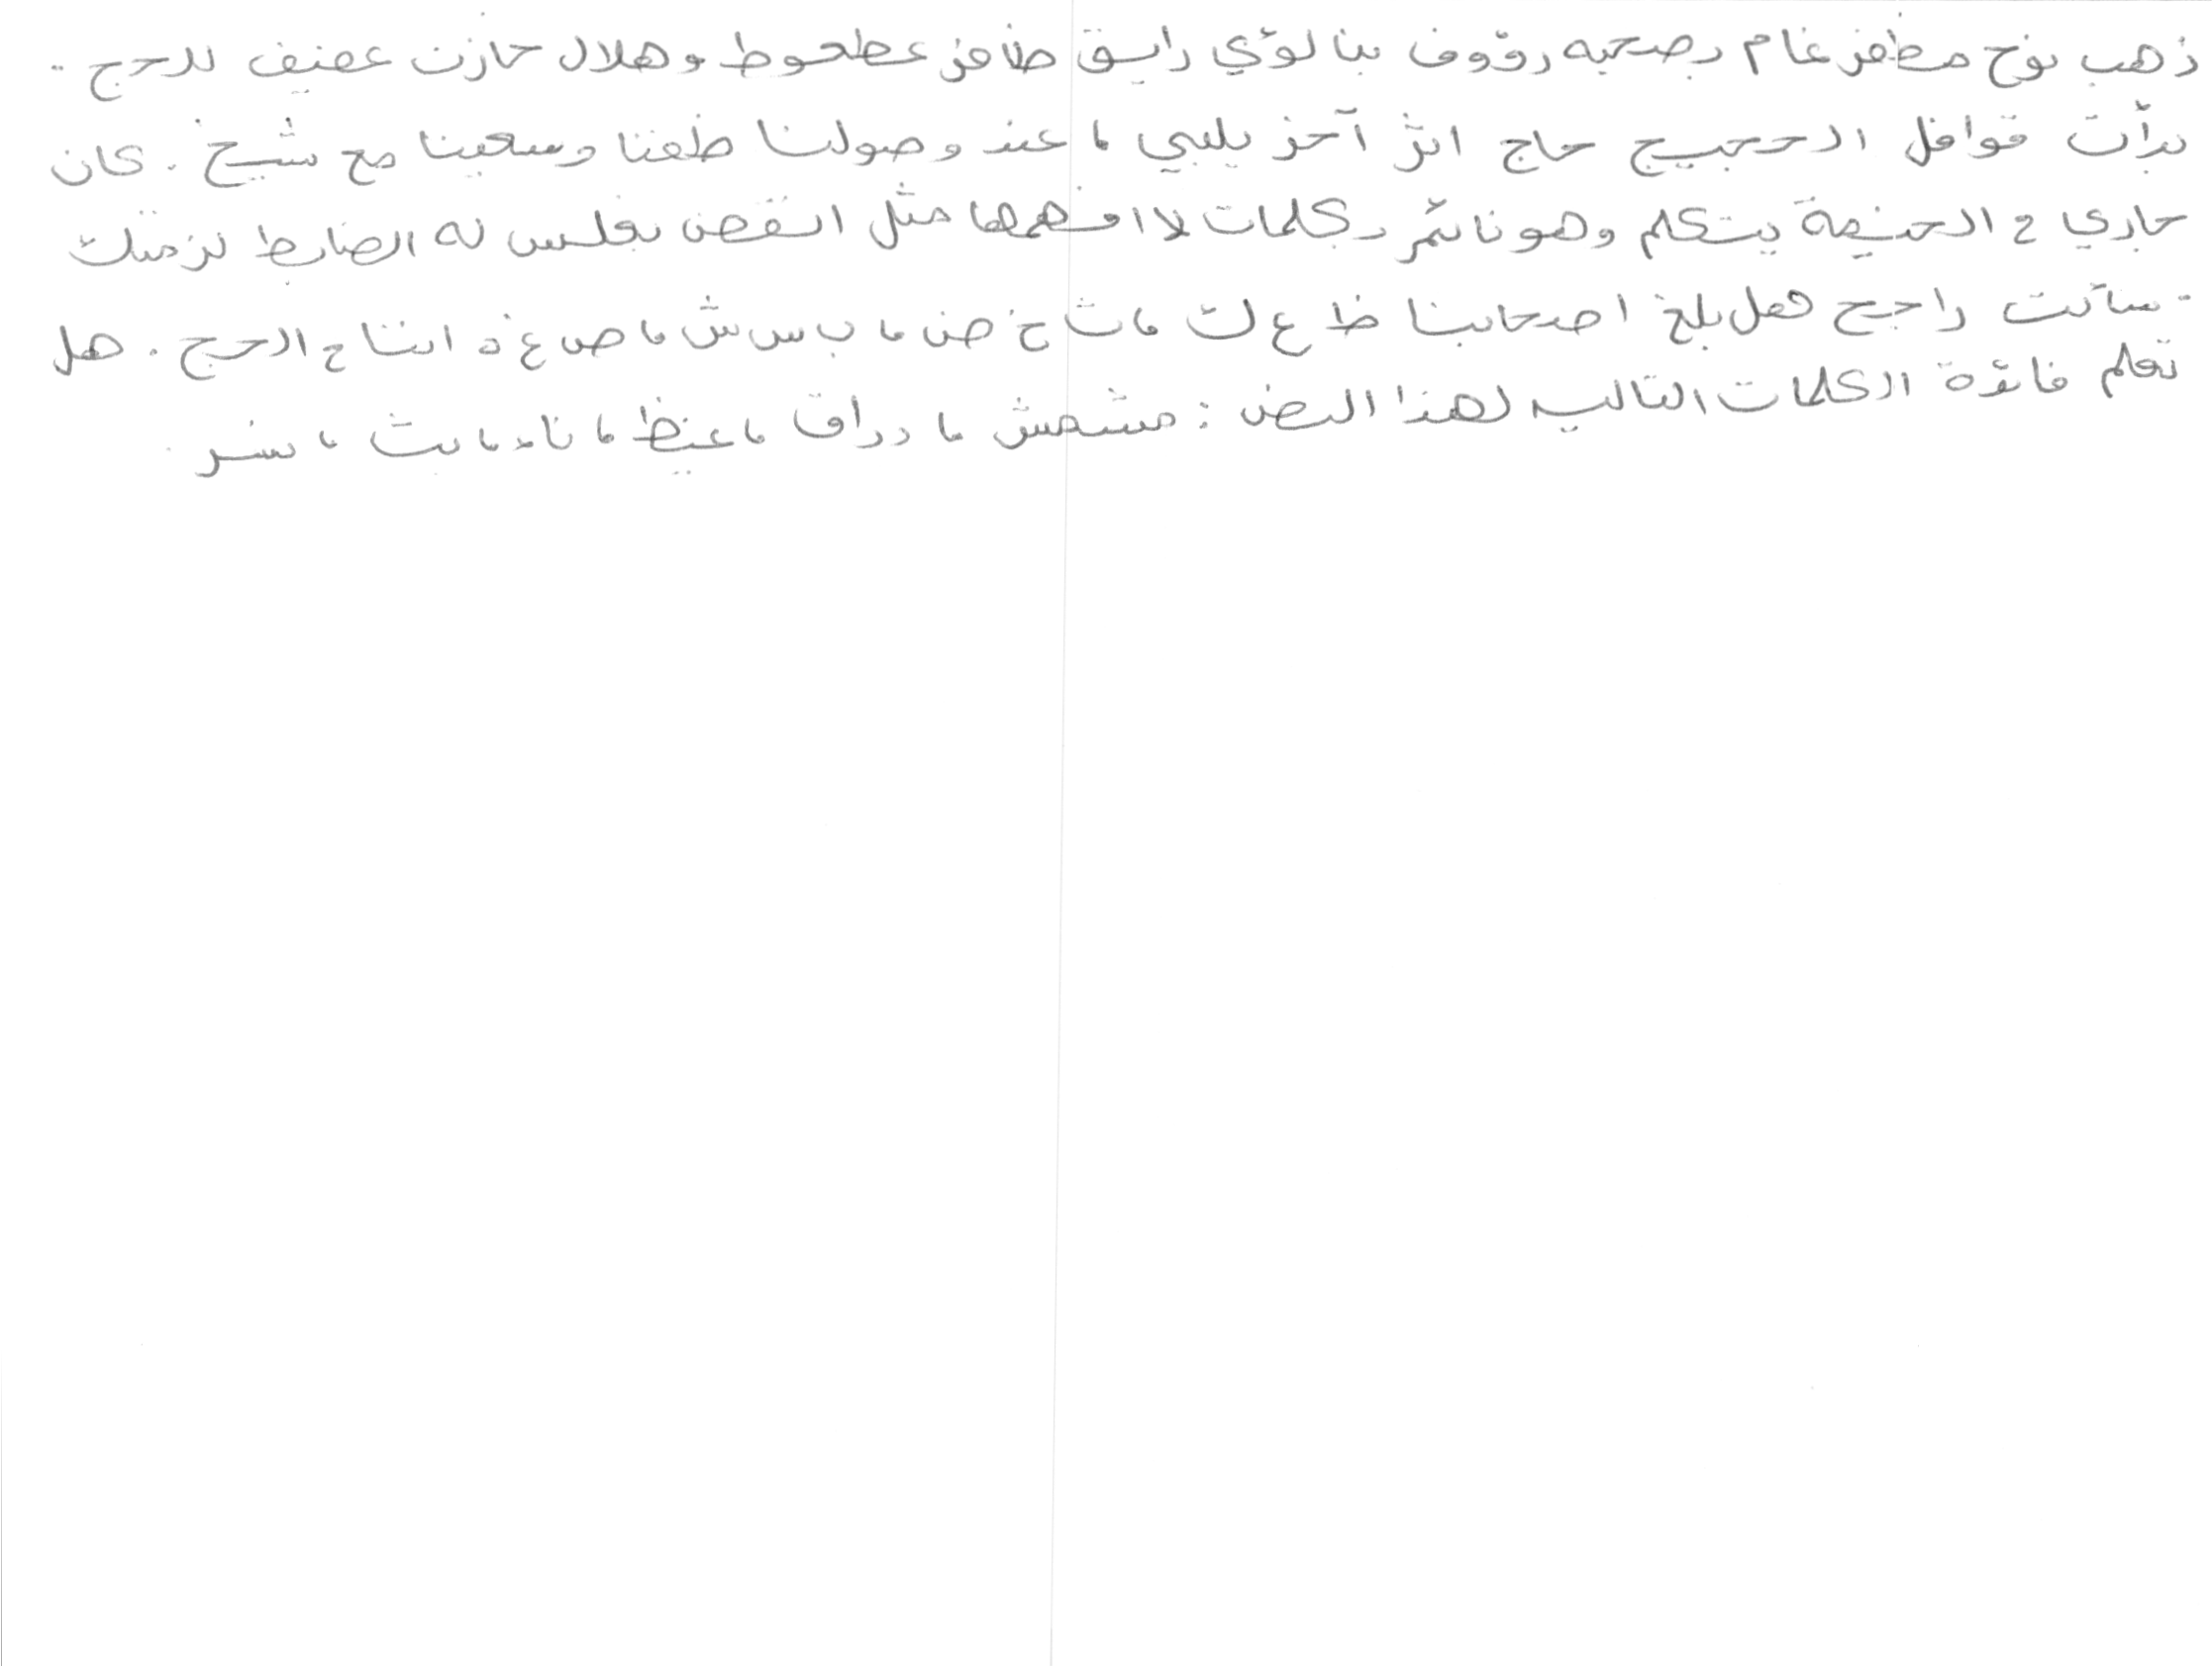 ذهب نوح مظفر غانم بصحبه رؤوف بنا لؤي رايق ظافر عطعوط وهلال حازن عفيف للحج ..
بدأت قوافل الحجيج حاج اثر آخر يلبي ، عند وصولنا طفنا وسعينا مع شيخ . كان
جاري في الخيمة يتكلم وهو نائم بكلمات لا افهمها مثل القصن بعلس له الضابط لزمتك
. سألت راجح هل بلغ اصحابنا ظ ع ك ، ث خ ض ، ب س ش ، ص غ ذ اثناء الحج . هل
تعلم فائدة الكلمات التاليه لهذا النص : مشمش ، دراق ، غيظ ، ناء ، بث ، نسر .